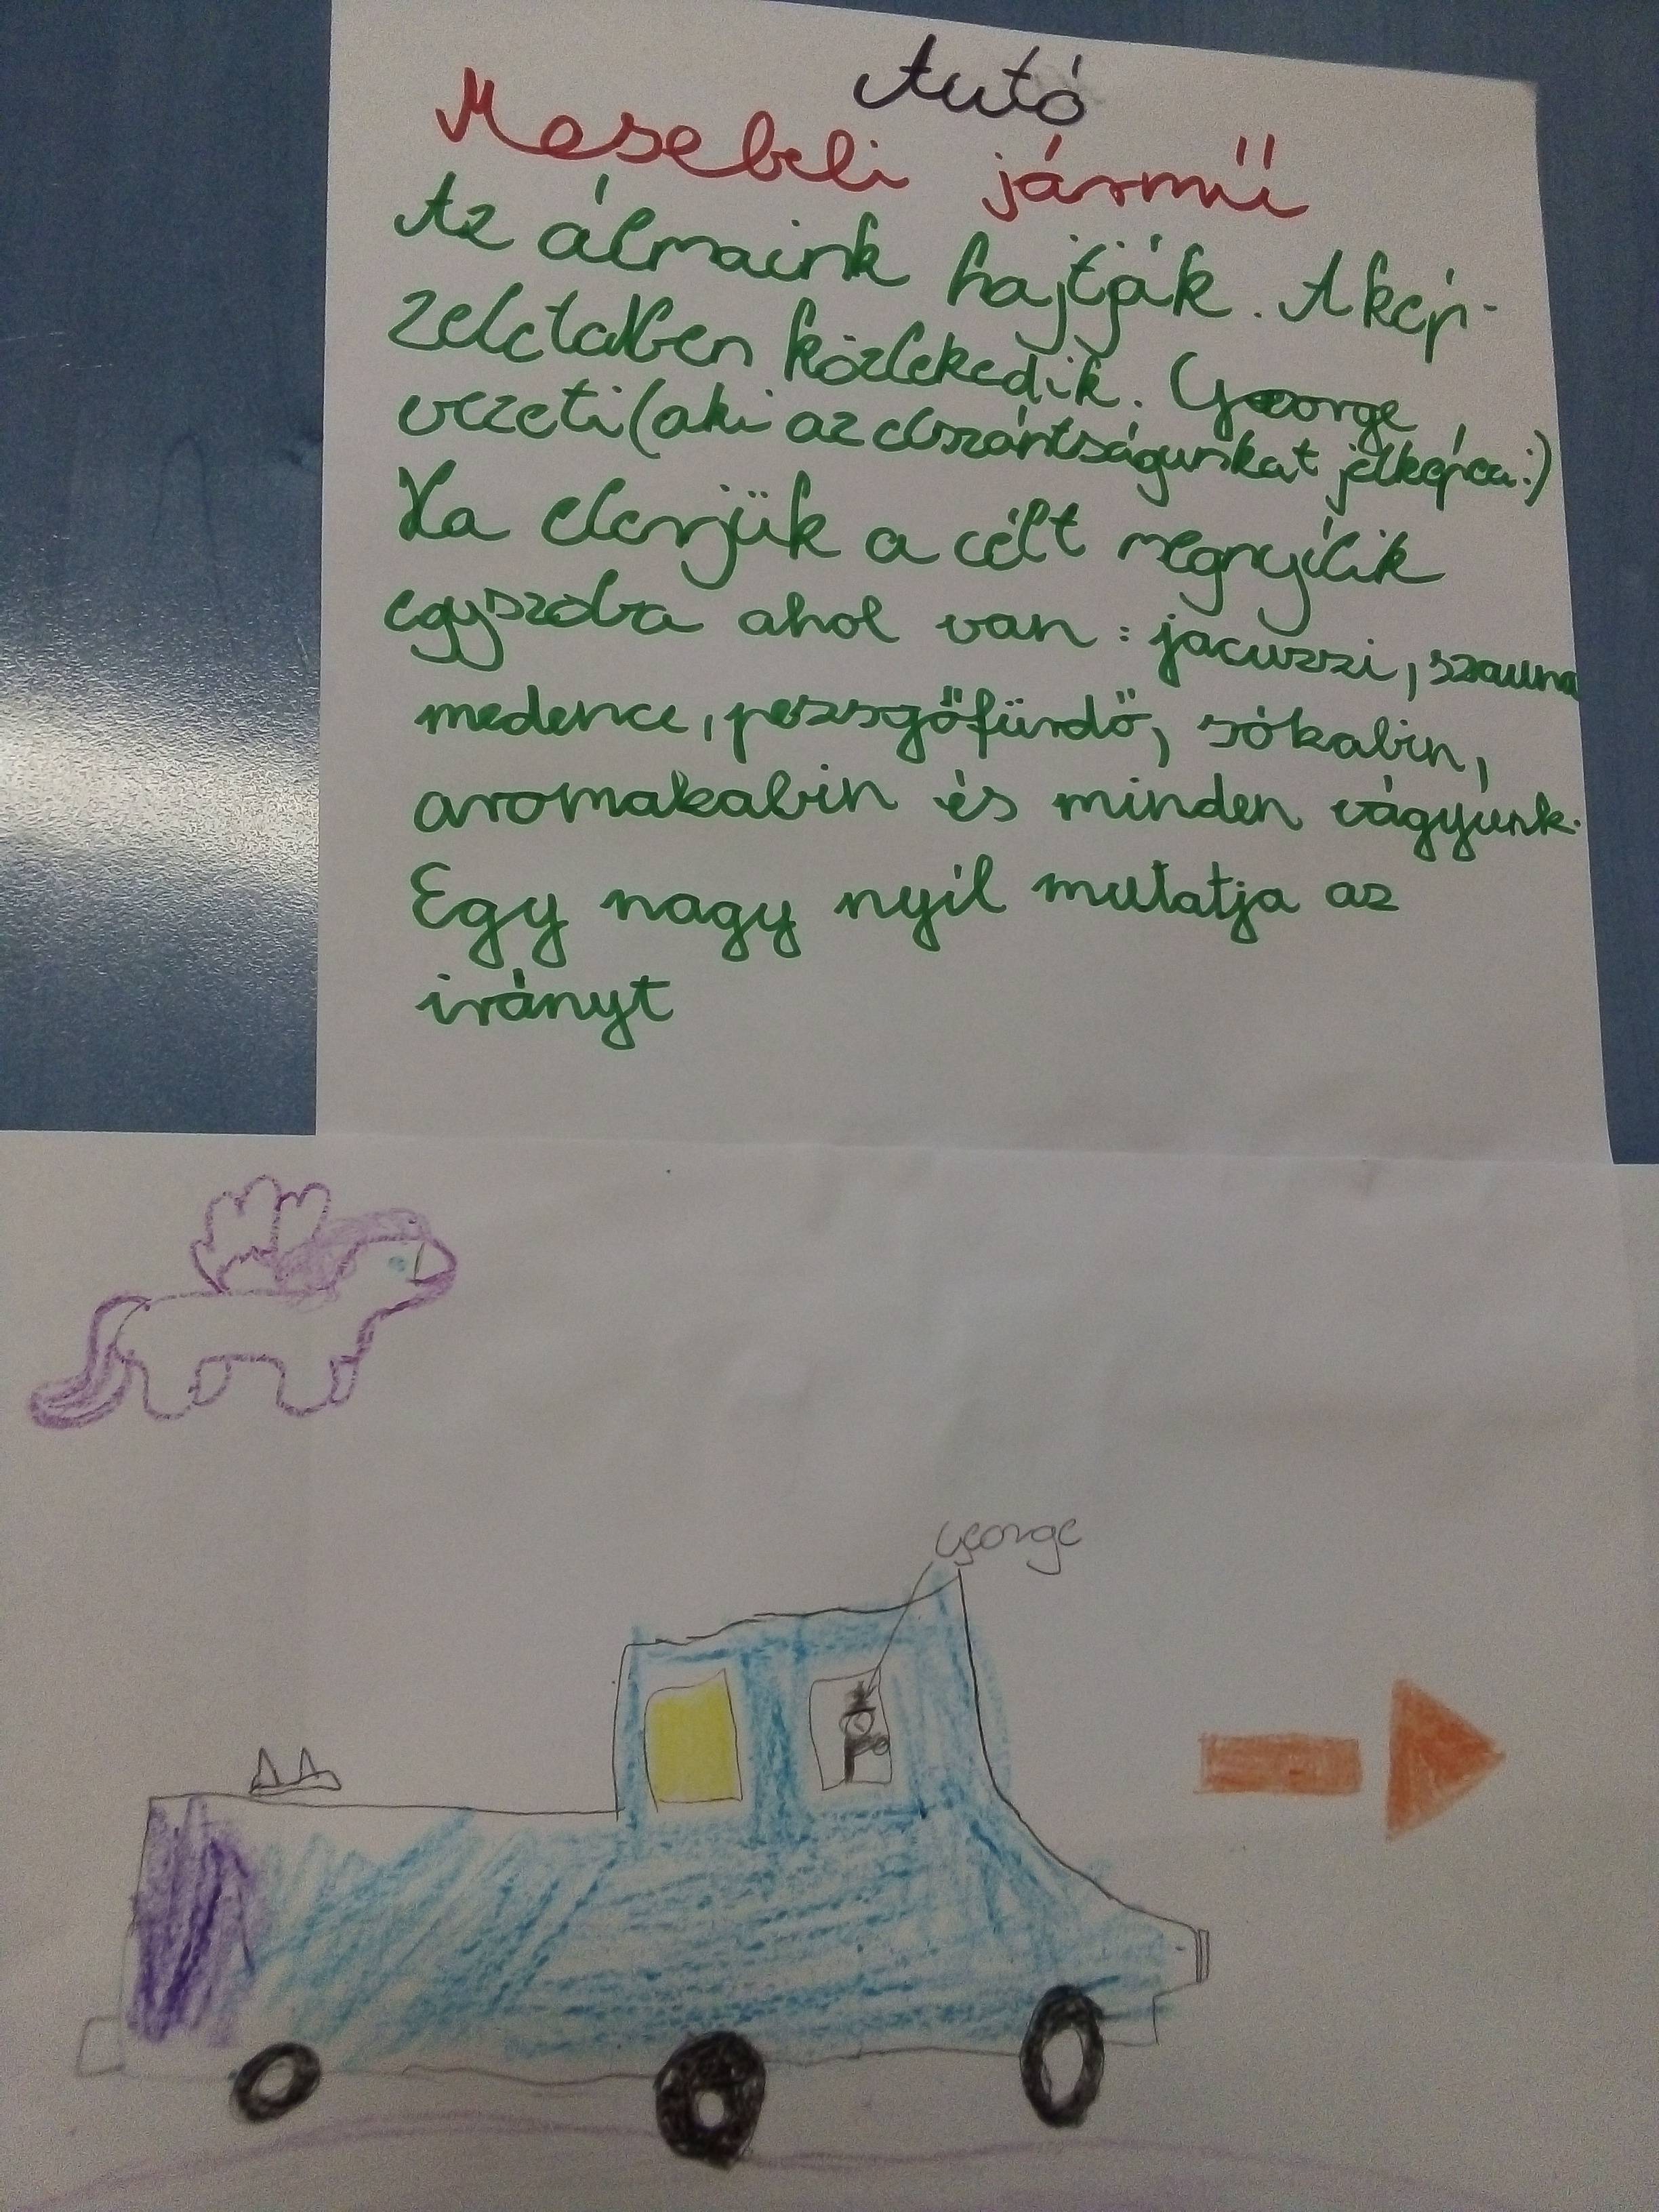 Autó
Mesebeli jármű
Az álmaink hajtják. A kép-
zeletekben közlekedik. George
vezeti (aki az elszántságunkat jelképezi:)
Ha elérjük a célt megnyílik
egyszoba ahol van: jacuzzi, szauna
medence, pezsgőfürdő, sókabin,
aromakabin és minden vágyunk.
Egy nagy nyíl mutatja az
irányt
George